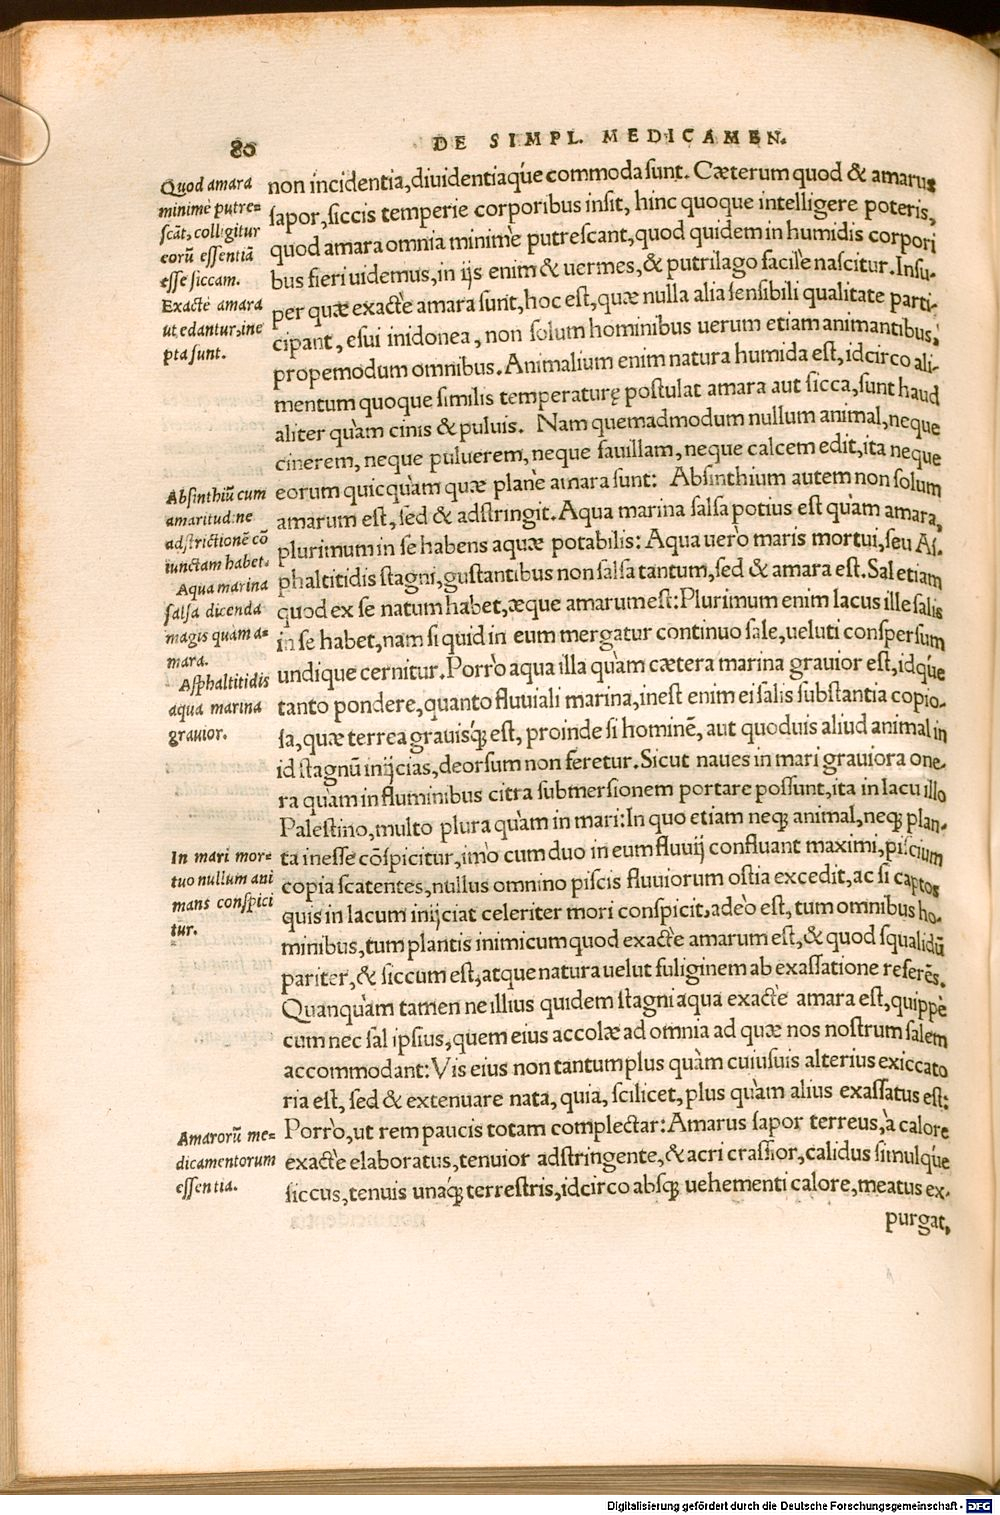 80
DE SIMPL. MEDICAMEN.
Quod amara
minimè putre=
ſcāt, colligitur
eorū eſſentiā
eſſe ſiccam.
Exactè amara
ut edantur, ine
pta ſunt.
Abſinthiū cum
amaritudine
adſtrictionē cō
iunctam habet.
Aqua marina
ſalſa dicenda
magis quàm a=
mara.
Aſphaltitidis
aqua marina
grauior.
In mari mor=
tuo nullum ani
mans conſpici
tur.
Amarorū me=
dicamentorum
eſſentia.
non incidentia, diuidentiaq́ue commoda ſunt. Cæterum quod & amarus
ſapor, ſiccis temperie corporibus inſit, hinc quoque intelligere poteris,
quod amara omnia minimè putreſcant, quod quidem in humidis corpori
bus fieri uidemus, in ijs enim & uermes, & putrilago facilè naſcitur. Inſu-
per quæ exactè amara ſunt, hoc eſt, quæ nulla alia ſenſibili qualitate parti-
cipant, eſui inidonea, non ſolum hominibus uerum etiam animantibus,
propemodum omnibus. Animalium enim natura humida eſt, idcirco ali-
mentum quoque ſimilis temperaturę poſtulat amara aut ſicca, ſunt haud
aliter quàm cinis & puluis. Nam quemadmodum nullum animal, neque
cinerem, neque puluerem, neque fauillam, neque calcem edit, ita neque
eorum quicquàm quæ planè amara ſunt: Abſinthium autem non ſolum
amarum eſt, ſed & adſtringit. Aqua marina ſalſa potius eſt quàm amara,
plurimum in ſe habens aquæ potabilis: Aqua uerò maris mortui, ſeu Aſ-
phaltitidis ſtagni, guſtantibus non ſalſa tantum, ſed & amara eſt. Sal etiam
quod ex ſe natum habet, æque amarum eſt: Plurimum enim lacus ille ſalis
in ſe habet, nam ſi quid in eum mergatur continuo ſale, ueluti conſperſum
undique cernitur. Porrò aqua illa quàm cætera marina grauior eſt, idq́ue
tanto pondere, quanto fluuiali marina, ineſt enim ei ſalis ſubſtantia copio-
ſa, quæ terrea grauisq́ꝫ eſt, proinde ſi hominē, aut quoduis aliud animal in
id ſtagnū inijcias, deorſum non feretur. Sicut naues in mari grauiora one-
ra quàm in fluminibus citra ſubmerſionem portare poſſunt, ita in lacu illo
Paleſtino, multo plura quàm in mari: In quo etiam neqꝫ animal, neqꝫ plan-
ta ineſſe cōſpicitur, imò cum duo in eum fluuij confluant maximi, piſcium
copia ſcatentes, nullus omnino piſcis fluuiorum oſtia excedit, ac ſi captos
quis in lacum inijciat celeriter mori conſpicit, adeò eſt, tum omnibus ho-
minibus, tum plantis inimicum quod exactè amarum eſt, & quod ſqualidū
pariter, & ſiccum eſt, atque natura uelut fuliginem ab exaſſatione referēs.
Quanquàm tamen ne illius quidem ſtagni aqua exactè amara eſt, quippè
cum nec ſal ipſius, quem eius accolæ ad omnia ad quæ nos noſtrum ſalem
accommodant: Vis eius non tantum plus quàm cuiuſuis alterius exiccato
ria eſt, ſed & extenuare nata, quia, ſcilicet, plus quàm alius exaſſatus eſt:
Porrò, ut rem paucis totam complectar: Amarus ſapor terreus, à calore
exactè elaboratus, tenuior adſtringente, & acri craſſior, calidus ſimulq́ue
ſiccus, tenuis unaq́ꝫ terreſtris, idcirco abſqꝫ uehementi calore, meatus ex-
purgat,
Digitalisierung gefördert durch die Deutsche Forschungsgemeinschaft - DFG